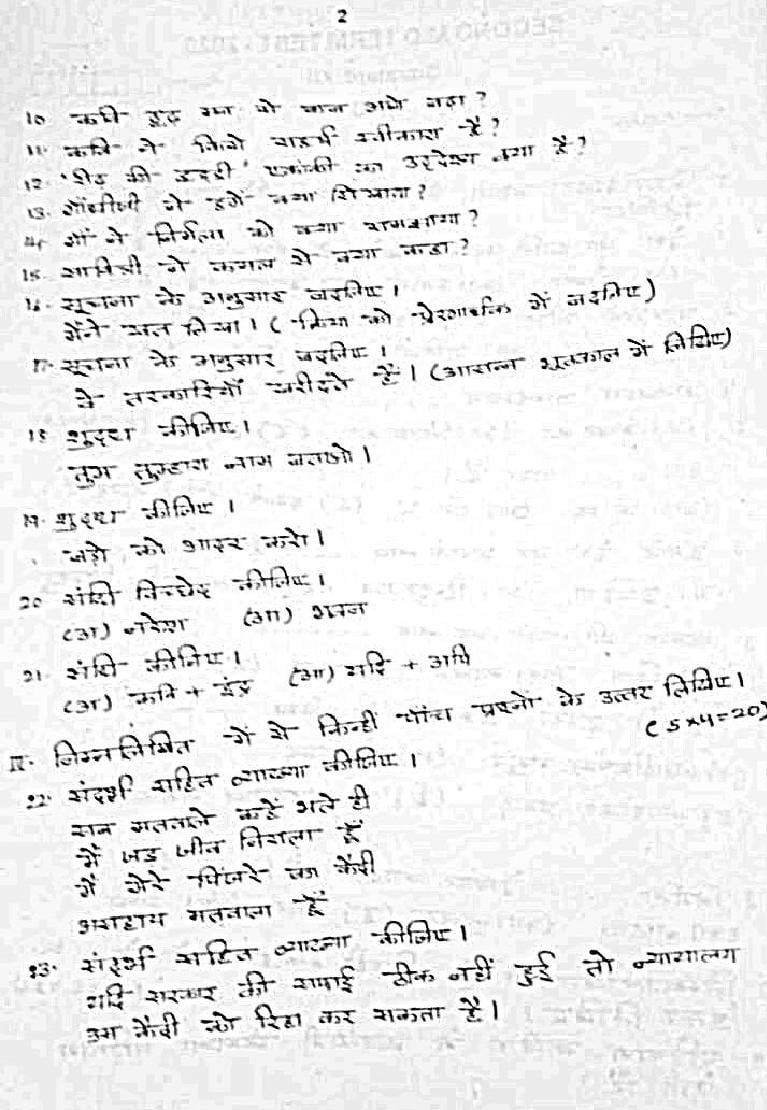 2
10 कवि
11. कवि ने किसे सहर्ष स्वीकारा है?
12. 'रीढ़ की हड्डी' एकांकी का उद्देश्य क्या है?
13. गाँधीजी ने हमें क्या सिखाया?
14. माँ ने निर्मला को क्या समझाया?
15. सावित्री ने कमल से क्या कहा?
16. सूचना के अनुसार बदलिए।
मैंने लिया। (क्रिया को प्रेरणार्थक में बदलिए)
17. सूचना के अनुसार बदलिए।
वे तरकारियाँ खरीदते हैं। (आसन्न भूतकाल में लिखिए)
18 शुद्ध कीजिए।
तुम तुम्हारा नाम बताओ।
19. शुद्ध कीजिए।
बड़ों को आदर करो।
20 संधि विच्छेद कीजिए।
(अ) नरेश (आ) भवन
21. संधि कीजिए।
(अ) कवि + इंद्र (आ) यदि + अपि
II. निम्नलिखित में से किन्हीं पाँच प्रश्नों के उत्तर लिखिए।
(5x4=20)
22. संदर्भ सहित व्याख्या कीजिए।
सब मतवाले कहें भले ही
मैं जड़ जीव निराला हूँ
मैं तेरे पिंजरे का कैदी
असहाय मतवाला हूँ
23. संदर्भ सहित व्याख्या कीजिए।
यदि सरकार की सफाई ठीक नहीं हुई तो न्यायालय
उस कैदी को रिहा कर सकता है।